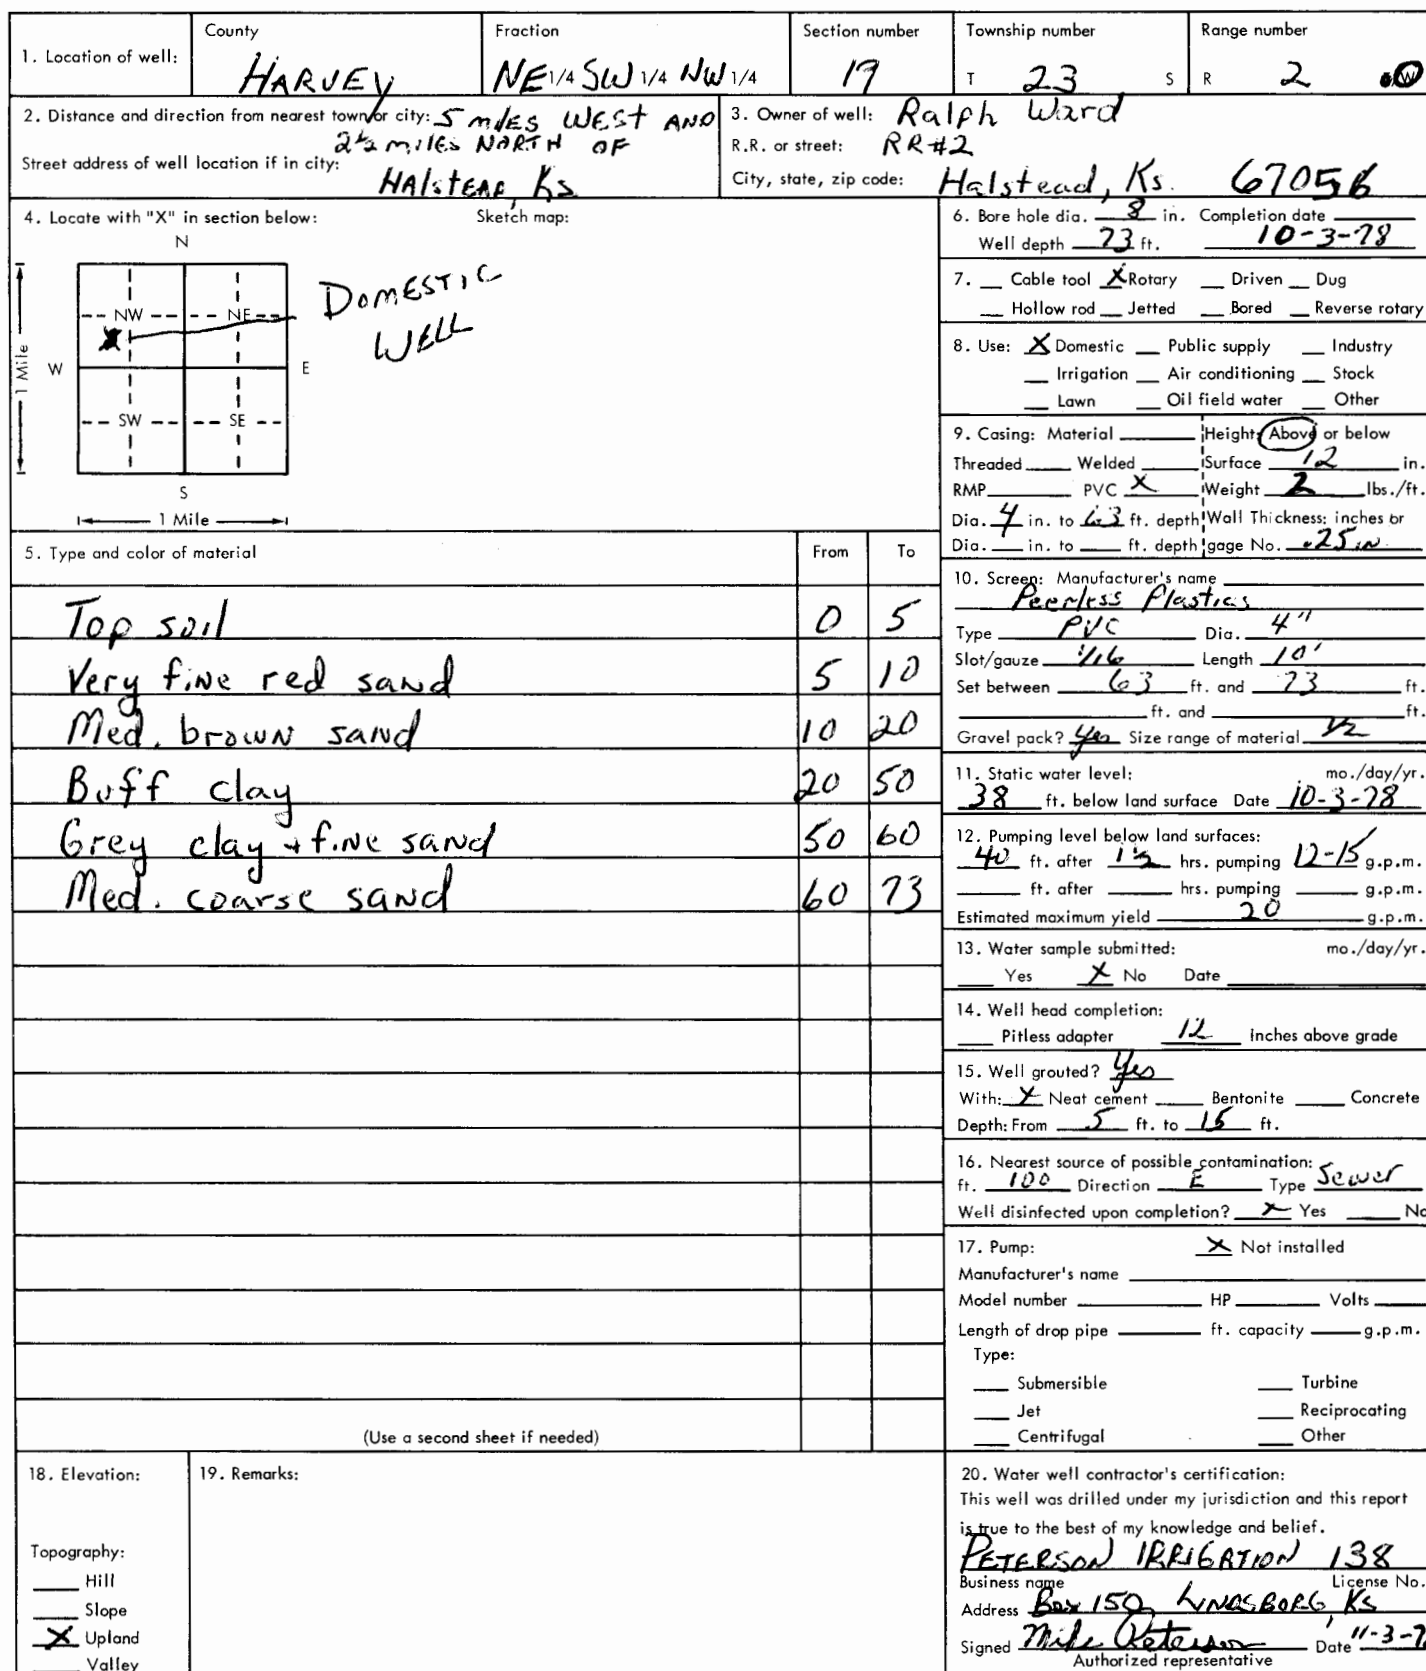 1. Location of well: County HARVEY Fraction NE 1/4 SW 1/4 NW 1/4 Section number 19 Township number T 23 S Range number R 2 W
2. Distance and direction from nearest town or city: 5 miles WEST AND
2 1/2 miles NORTH OF
Street address of well location if in city:
HAlsteAD, Ks
3. Owner of well: Ralph Ward
R.R. or street: RR#2
City, state, zip code: Halstead, Ks. 67056
4. Locate with "X" in section below: Sketch map:
N
NW NE
W E
SW SE
S
1 Mile
1 Mile
X
DOMESTIC
WELL
5. Type and color of material From To
Top soil 0 5
Very fine red sand 5 10
Med. brown sand 10 20
Buff clay 20 50
Grey clay + fine sand 50 60
Med. coarse sand 60 73
(Use a second sheet if needed)
6. Bore hole dia. 8 in. Completion date
Well depth 73 ft. 10-3-78
7. Cable tool X Rotary Driven Dug
Hollow rod Jetted Bored Reverse rotary
8. Use: X Domestic Public supply Industry
Irrigation Air conditioning Stock
Lawn Oil field water Other
9. Casing: Material Height: Above or below
Threaded Welded Surface 12 in.
RMP PVC X Weight 2 lbs./ft.
Dia. 4 in. to 63 ft. depth Wall Thickness: inches or
Dia. in. to ft. depth gage No. .25 in
10. Screen: Manufacturer's name
Peerless Plastics
Type PVC Dia. 4"
Slot/gauze 1/16 Length 10'
Set between 63 ft. and 73 ft.
ft. and ft.
Gravel pack? Yes Size range of material 1/2
11. Static water level: mo./day/yr.
38 ft. below land surface Date 10-3-78
12. Pumping level below land surfaces:
40 ft. after 1 1/2 hrs. pumping 12-15 g.p.m.
ft. after hrs. pumping g.p.m.
Estimated maximum yield 20 g.p.m.
13. Water sample submitted: mo./day/yr.
Yes X No Date
14. Well head completion:
Pitless adapter 12 Inches above grade
15. Well grouted? Yes
With: X Neat cement Bentonite Concrete
Depth: From 5 ft. to 15 ft.
16. Nearest source of possible contamination:
ft. 100 Direction E Type Sewer
Well disinfected upon completion? X Yes No
17. Pump: X Not installed
Manufacturer's name
Model number HP Volts
Length of drop pipe ft. capacity g.p.m.
Type:
Submersible Turbine
Jet Reciprocating
Centrifugal Other
18. Elevation:
Topography:
Hill
Slope
X Upland
Valley
19. Remarks:
20. Water well contractor's certification:
This well was drilled under my jurisdiction and this report
is true to the best of my knowledge and belief.
PETERSON IRRIGATION 138
Business name License No.
Address Box 150, LINDSBORG, Ks
Signed Mike Peterson Date 11-3-7
Authorized representative